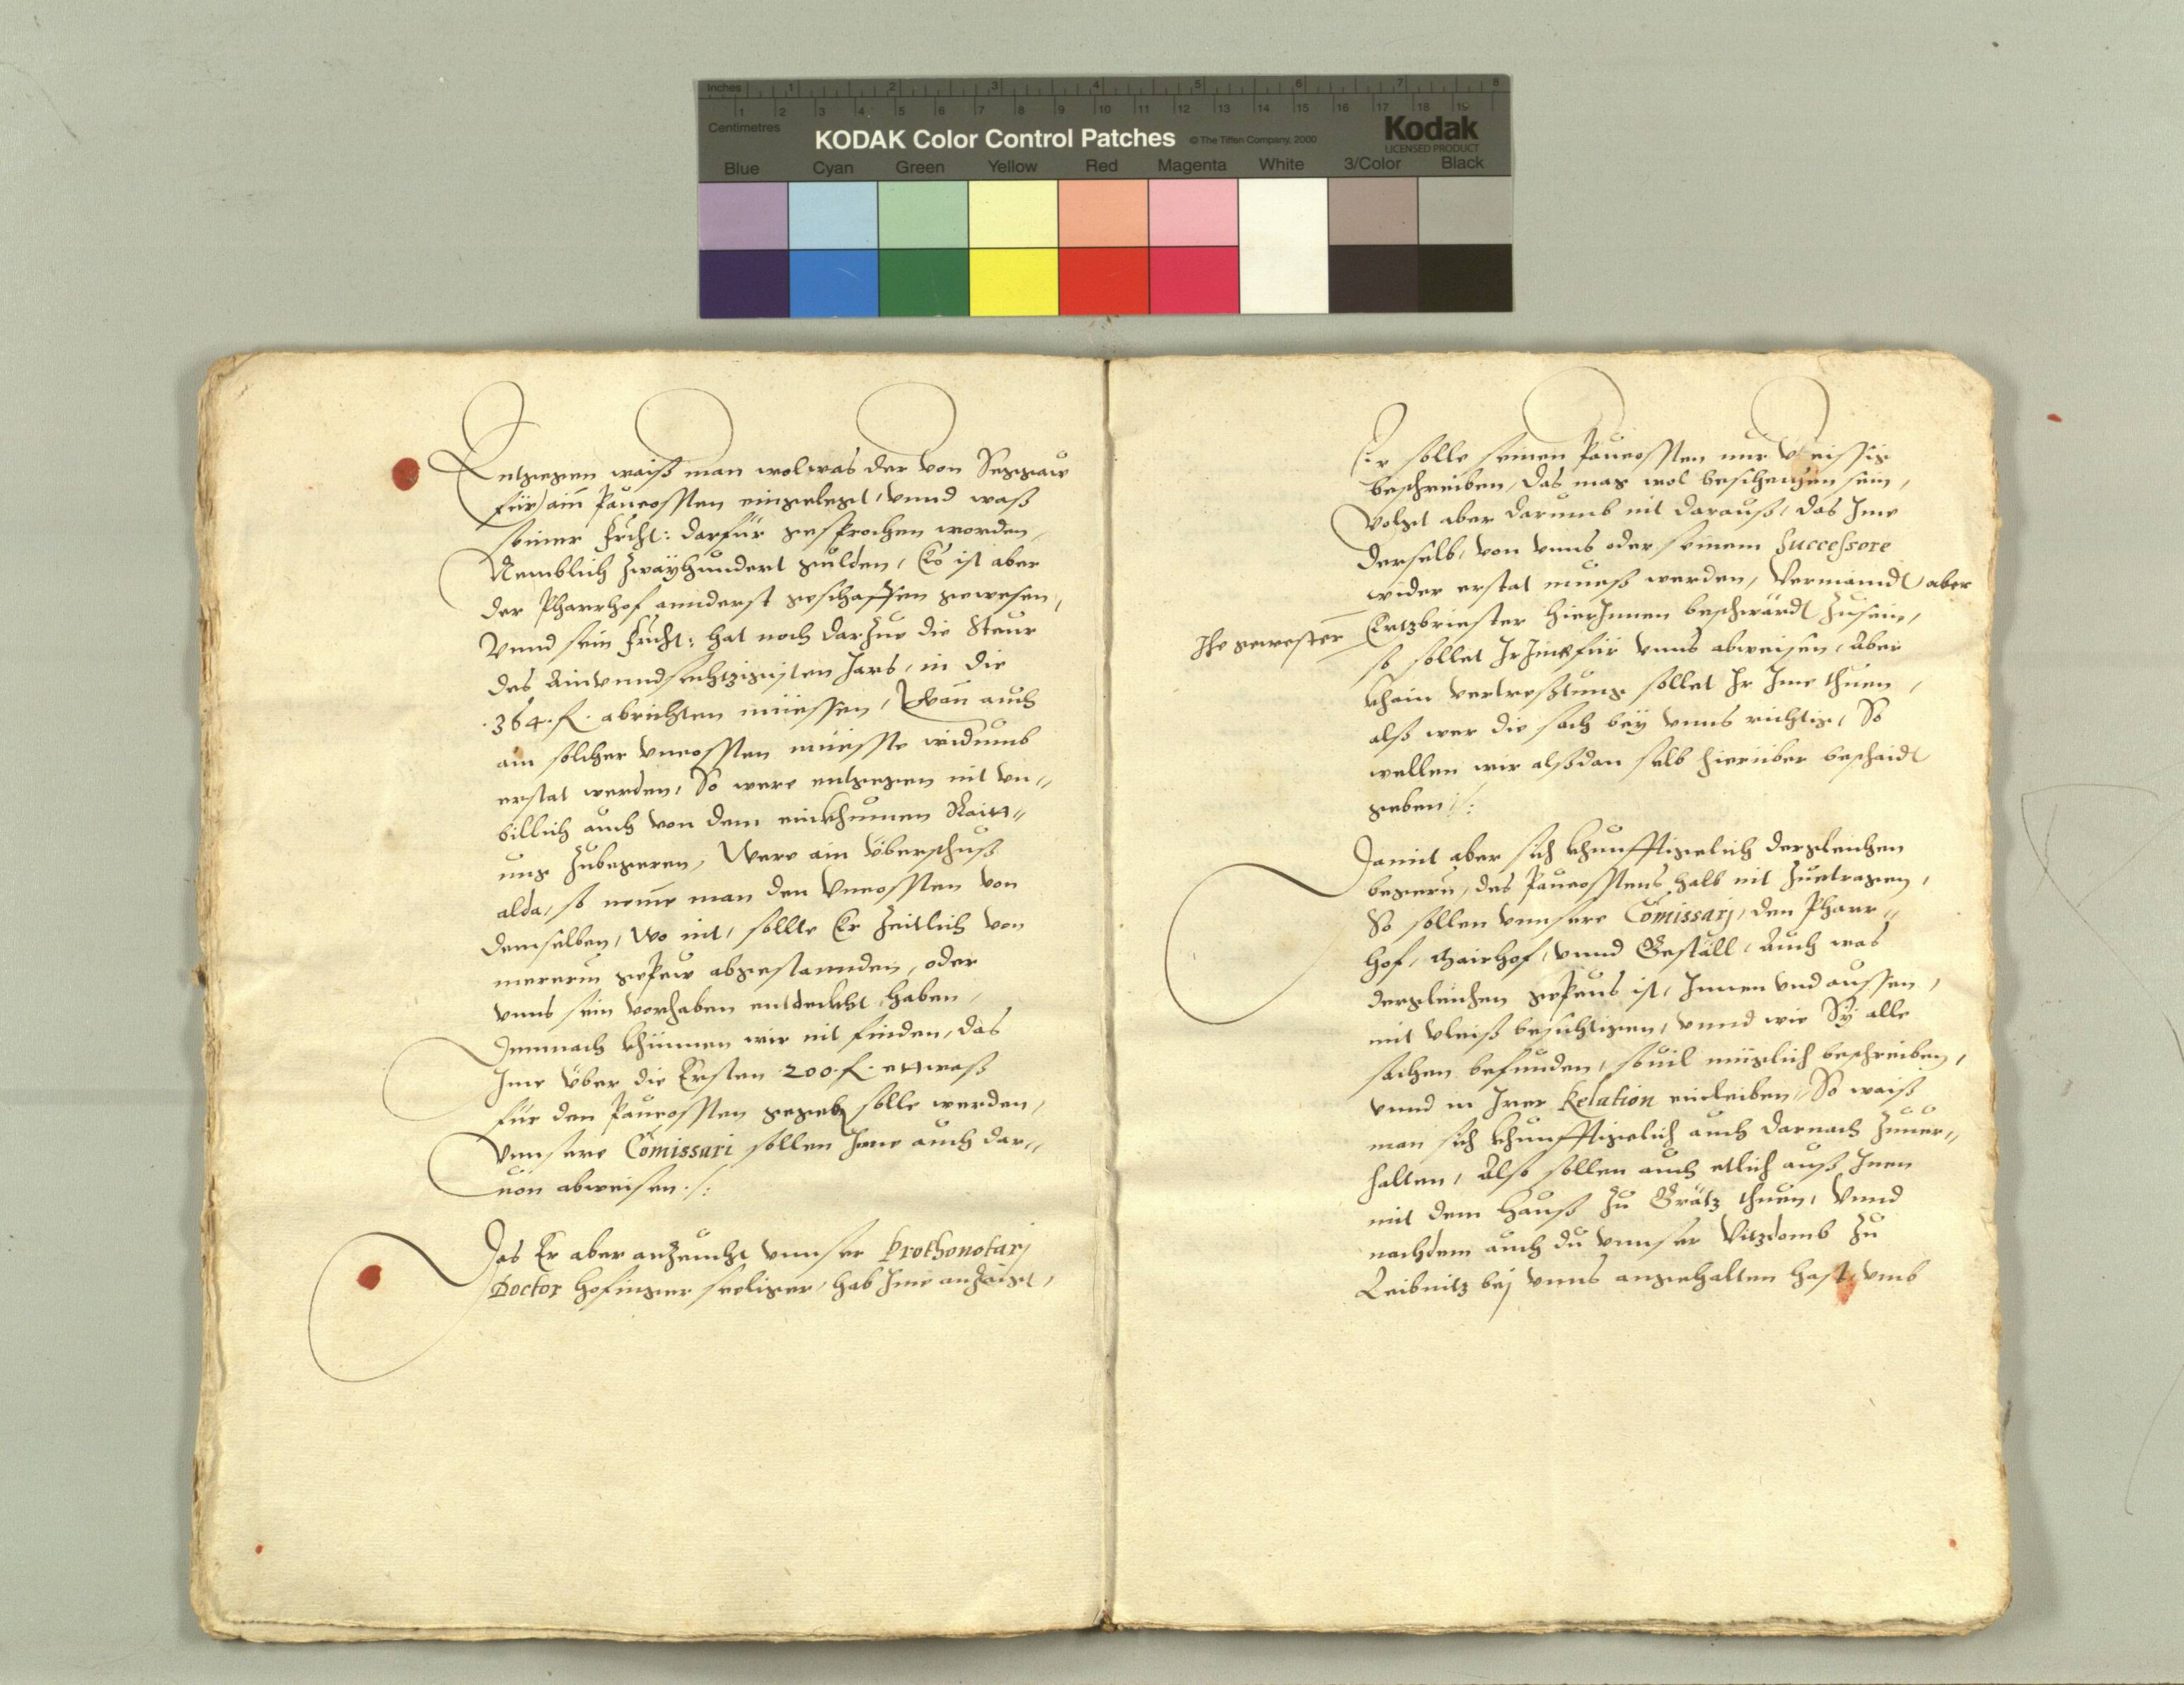 Inches 1 2 3 4 5 6 7 8
1 2 3 4 5 6 7 8 9 10 11 12 13 14 15 16 17 18 19
Centimetres
KODAK Color Control Patches © The Tiffen Company, 2000 Kodak
LICENSED PRODUCT
Blue Cyan Green Yellow Red Magenta White 3/Color Black
Entgegen waiß man wol was der von Seggaw
für ain Paucossten eingelegt, vnnd waß
seiner Erw: darfür gesprochen worden,
Nemblich Zwayhundert gulden, Es ist aber
der Pharrhof annderst geschaffen gewesen,
Vnnd sein hat noch darzue die Steur
des Ainvnndsechtzigisten Jars, in die
.364. fl. abrichten müessen, Wan auch
ain solcher vncossten müesste widumb
erstat werden, So were entgegen nit vn-
billich auch von dem einkhumen Rait-
ung Zubegeren, Were ain Überschuß
alda, so neme man den Vncossten von
demselben, Wo nit, sollte Er Zeitlich von
mererm gepew abgestannden, oder
vnns sein vorhaben entdeckht haben,
Demnach khünnen wir nit finden, das
Jme Über die Ersten 200. fl. etwaß
für den Paucossten gegeben solle werden,
Vnnsere Comissari sollen Jme auch dar-
uon abweisen ./:
Das Er aber anzeucht vnnser Prothonotarj
Doctor Hofinger seeliger, hab Jme anzaigt,
Er solle seinen Paucossten nur vleissig
beschreiben, das mag wol beschehen sein,
Volgt aber darumb nit darauß, das Jme
derselb, von vnns oder seinem Successore
wider erstat mueß werden, Vermaindt aber
Jhe gewester Ertzbriester hierJnnen beschwärdt Zusein,
so sollet Jr Jme für vnns abweisen, Aber
khain vertrösstung sollet Jr Jme thuen,
alß wer die sach bey vnns richtig, So
wellen wir alßdan selb hierüber beschaidt
geben ./:
Damit aber sich khunfftigelich dergleichen
begern, des Paucosstens halb nit Zuetragen,
So sollen vnnsere Comissarj, den Pharr-
hof, Mairhof, vnnd Geställ, Auch was
dergleichen gepeus ist, Jnnen vnd aussen,
mit vleiß besichtigen, vnnd wie Sy alle
sachen befunden, souil müglich beschreiben,
vnnd in Jrer Relation einleiben, So waiß
man sich khunfftigelich auch darnach Zuuer-
halten, Also sollen auch etlich auß Jnen
mit dem Hauß Zu Grätz thuen, Vnnd
nachdem auch du vnnser Vitzdomb Zu
Leibnitz bej vnns angehalten hast, vmb